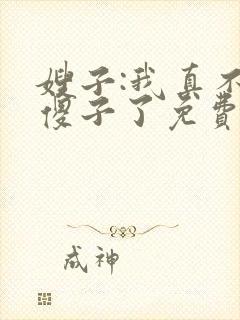 嫂子:我真不
傻子了免费
成神